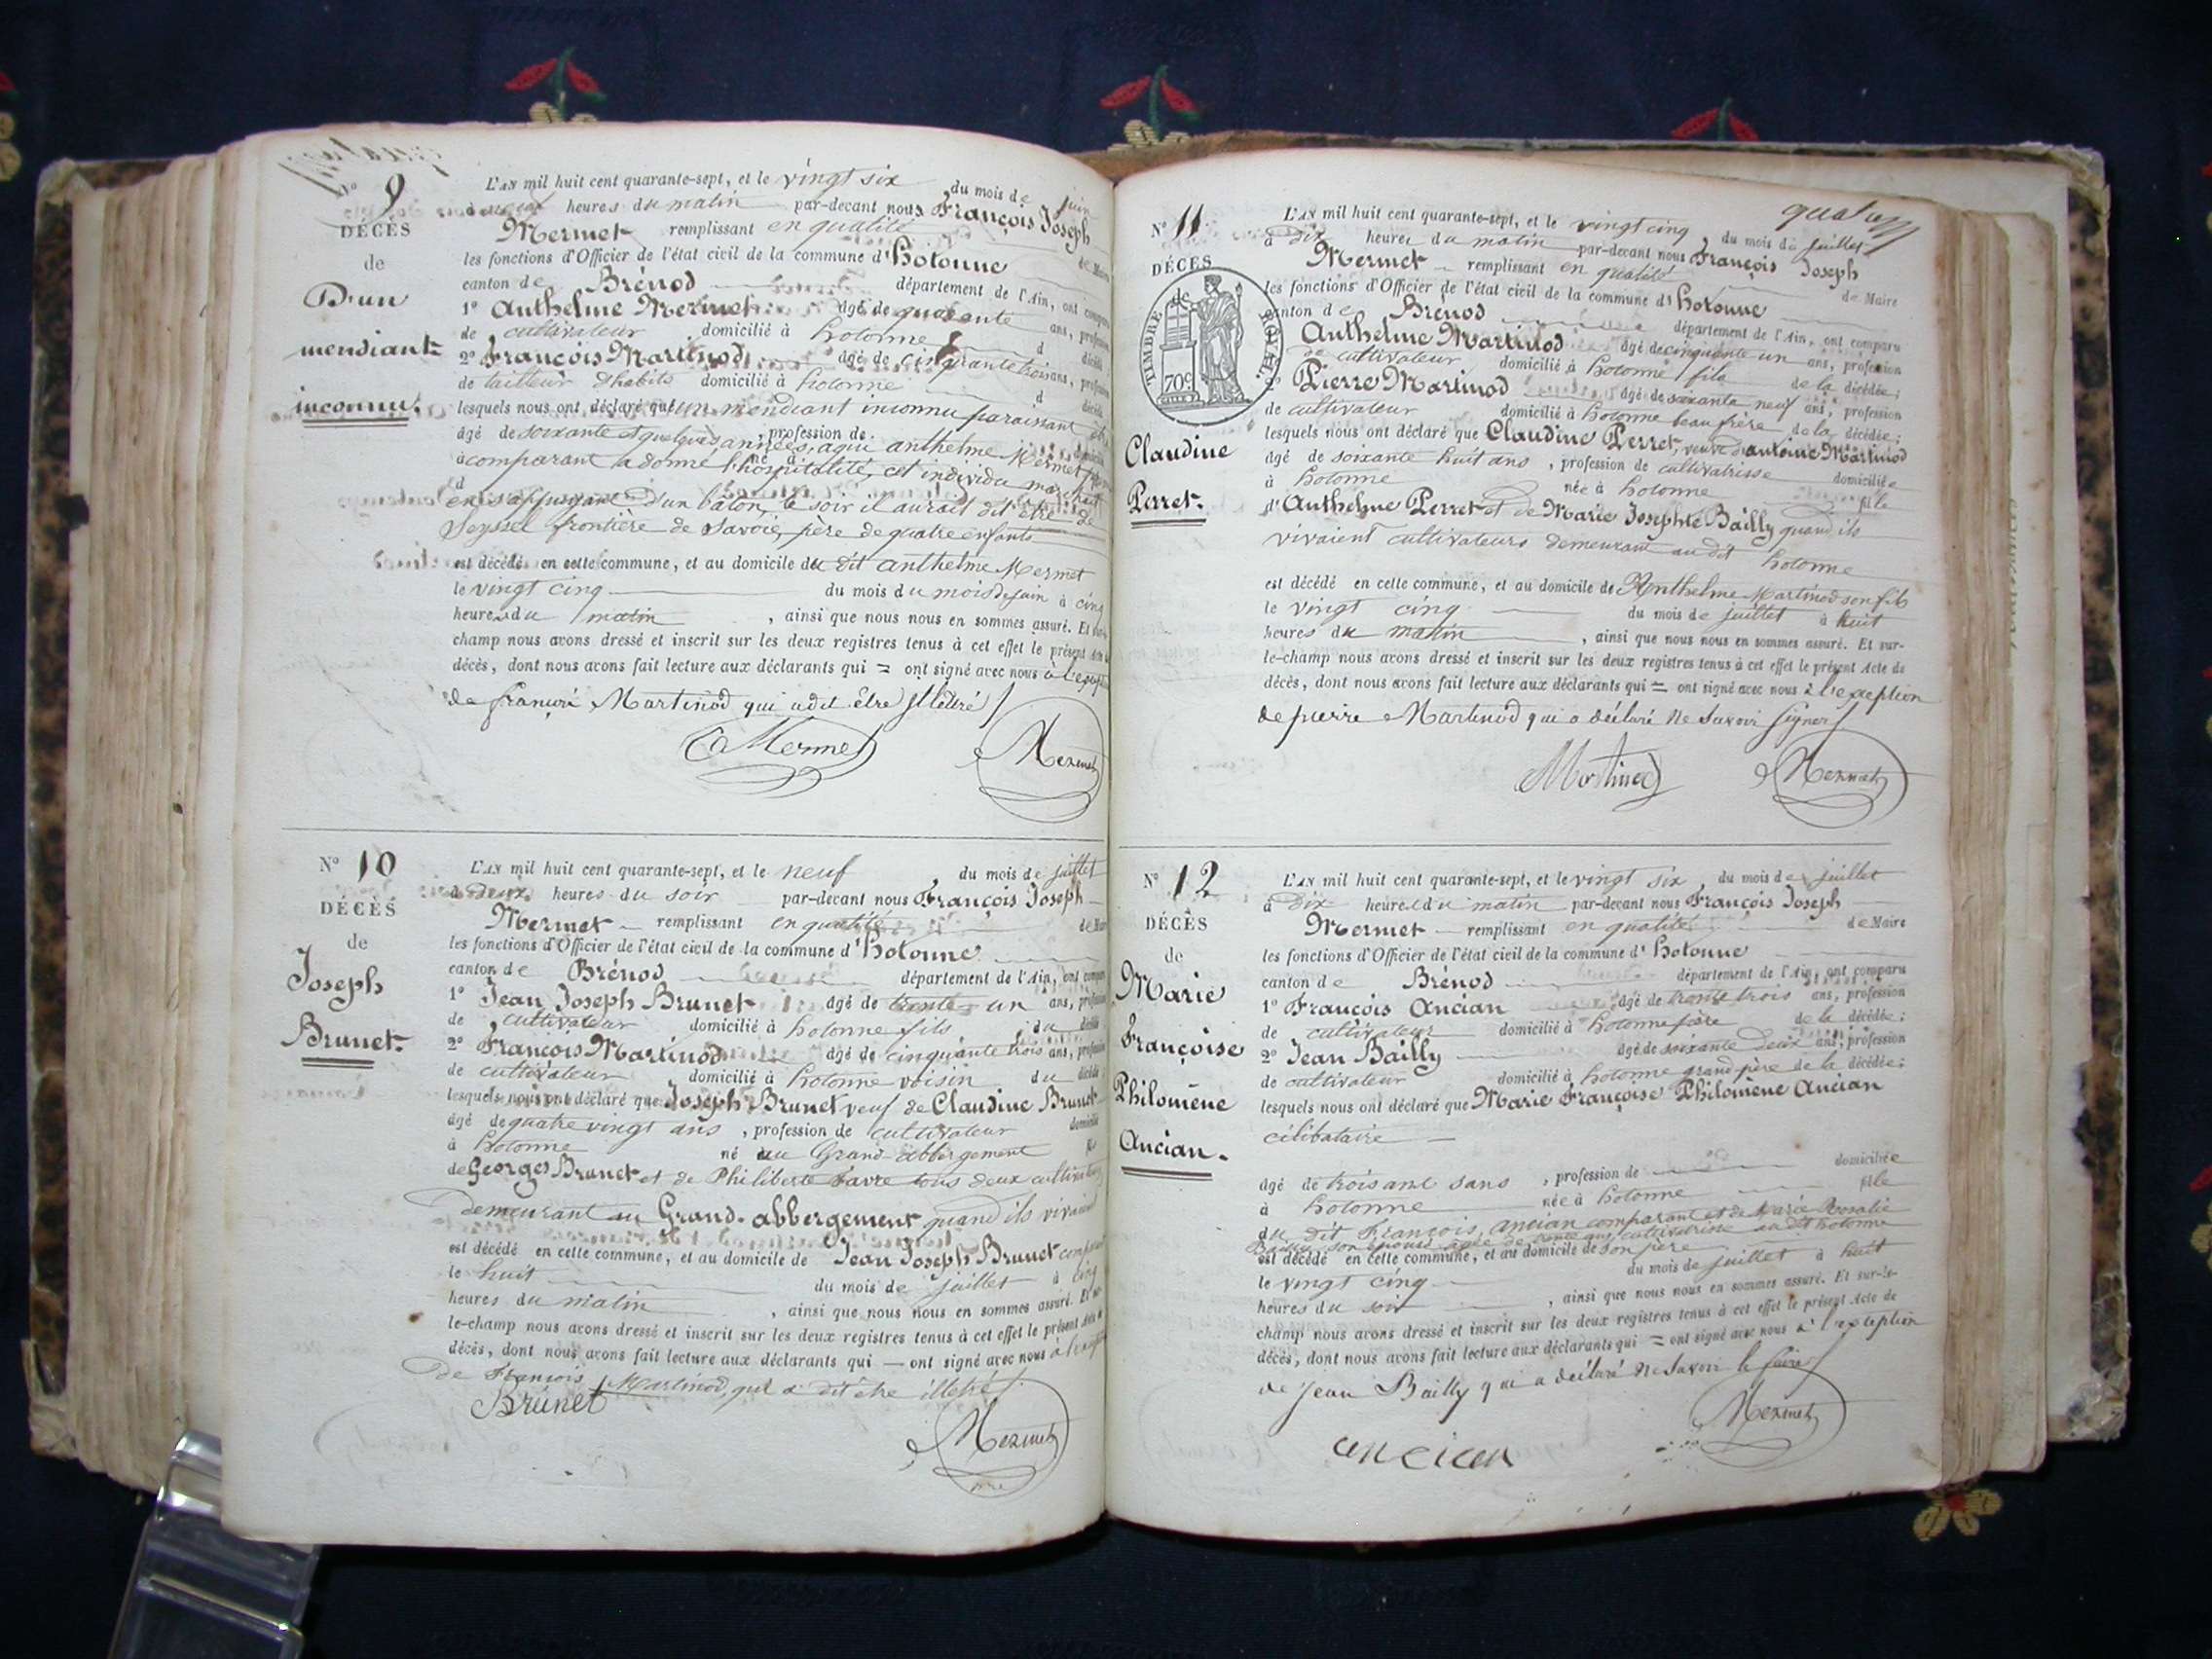 N° 9
DÉCÈS
de
D'un
mendiant
inconnu.
L'AN mil huit cent quarante-sept, et le vingt six du mois de juin
heures du matin par-devant nous François Joseph
Mermet remplissant en qualité de Maire
les fonctions d'Officier de l'état civil de la commune d'hotonne
canton de Brénod département de l'Ain, ont comparu
1° Anthelme Mermet âgé de quarante ans, profession
de cultivateur domicilié à hotonne d
2° François Martinod âgé de cinquante trois ans, profession
de tailleur d'habits domicilié à hotonne d décédé
lesquels nous ont déclaré que un mendiant inconnu paraissant
âgé de soixante et quelques années, profession de aqui anthelme Mermet
comparant a donné l'hospitalité, cet individu marchait
en s'appuyant d'un bâton, le soir il aurait dit être de
Seyssel frontière de Savoie, père de quatre enfants
est décédé en cette commune, et au domicile du dit anthelme Mermet
le vingt cinq du mois du mois de juin à cinq
heures du matin, ainsi que nous nous en sommes assuré. Et
champ nous avons dressé et inscrit sur les deux registres tenus à cet effet le présent Acte
décès, dont nous avons fait lecture aux déclarants qui = ont signé avec nous à l'exception
de françois Martinod qui a dit être illétré
Mermet
Mermet
N° 10
DÉCÈS
de
Joseph
Brunet.
L'AN mil huit cent quarante-sept, et le neuf du mois de juillet
à deux heures du soir par-devant nous François Joseph
Mermet remplissant en qualité de Maire
les fonctions d'Officier de l'état civil de la commune d'hotonne
canton de Brénod département de l'Ain, ont comparu
1° Jean Joseph Brunet âgé de trente un ans, profession
de cultivateur domicilié à hotonne fils du décédé
2° François Martinod âgé de cinquante trois ans, profession
de cultivateur domicilié à hotonne voisin du décédé
lesquels nous ont déclaré que Joseph Brunet veuf de Claudine Brunet
âgé de quatre vingt ans, profession de cultivateur domicilié
à hotonne né au Grand abbergement fils
de Georges Brunet et de Philiberte Favre tous deux cultivateurs
demeurant au Grand-abbergement quand ils vivaient
est décédé en cette commune, et au domicile de Jean Joseph Brunet comparant
le huit du mois de juillet à cinq
heures du matin, ainsi que nous nous en sommes assuré. Et sur-
le-champ nous avons dressé et inscrit sur les deux registres tenus à cet effet le présent Acte de
décès, dont nous avons fait lecture aux déclarants qui — ont signé avec nous à l'exception
de François Martinod, qui a dit être illetré
Brunet
Mermet
quatorze
N° 11
DÉCÈS
de
TIMBRE ROYAL
70c
Claudine
Perret.
L'AN mil huit cent quarante-sept, et le vingt cinq du mois de juillet
à dix heures du matin par-devant nous François Joseph
Mermet remplissant en qualité de Maire
les fonctions d'Officier de l'état civil de la commune d'hotonne
canton de Brénod département de l'Ain, ont comparu
Anthelme Martinod âgé de cinquante un ans, profession
de cultivateur domicilié à hotonne fils de la décédée;
2° Pierre Martinod âgé de soixante neuf ans, profession
de cultivateur domicilié à hotonne beau frère de la décédée;
lesquels nous ont déclaré que Claudine Perret, veuve d'antoine Martinod
âgé de soixante huit ans, profession de cultivatrisse domiciliée
à hotonne née à hotonne fille
d'Anthelme Perret et de Marie Josephte Bailly quand ils
vivaient cultivateurs demeurant au dit hotonne
est décédé en cette commune, et au domicile de Anthelme Martinod son fils
le vingt cinq du mois de juillet à huit
heures du matin, ainsi que nous nous en sommes assuré. Et sur-
le-champ nous avons dressé et inscrit sur les deux registres tenus à cet effet le présent Acte de
décès, dont nous avons fait lecture aux déclarants qui = ont signé avec nous à l'exception
de pierre Martinod qui a déclaré ne savoir signer
Martinod
Mermet
N° 12
DÉCÈS
de
Marie
Françoise
Philomène
Ancian.
L'AN mil huit cent quarante-sept, et le vingt six du mois de juillet
à dix heures du matin par-devant nous François Joseph
Mermet remplissant en qualité de Maire
les fonctions d'Officier de l'état civil de la commune d'hotonne
canton de Brénod département de l'Ain, ont comparu
1° François Ancian âgé de trente trois ans, profession
de cultivateur domicilié à hotonne père de la décédée;
2° Jean Bailly âgé de soixante deux ans, profession
de cultivateur domicilié à hotonne grand père de la décédée;
lesquels nous ont déclaré que Marie Françoise Philomène Ancian
célibataire
âgé de trois ans sans, profession de domiciliée
à hotonne née à hotonne fille
du dit François, ancian comparant et de Marie Rosalie
Bailly son épouse âgée de trente ans cultivatrice au dit hotonne
est décédé en cette commune, et au domicile de son père
le vingt cinq du mois de juillet à huit
heures du soir, ainsi que nous nous en sommes assuré. Et sur-le-
champ nous avons dressé et inscrit sur les deux registres tenus à cet effet le présent Acte de
décès, dont nous avons fait lecture aux déclarants qui = ont signé avec nous à l'exception
de jean Bailly qui a déclaré ne savoir le faire
ancian
Mermet